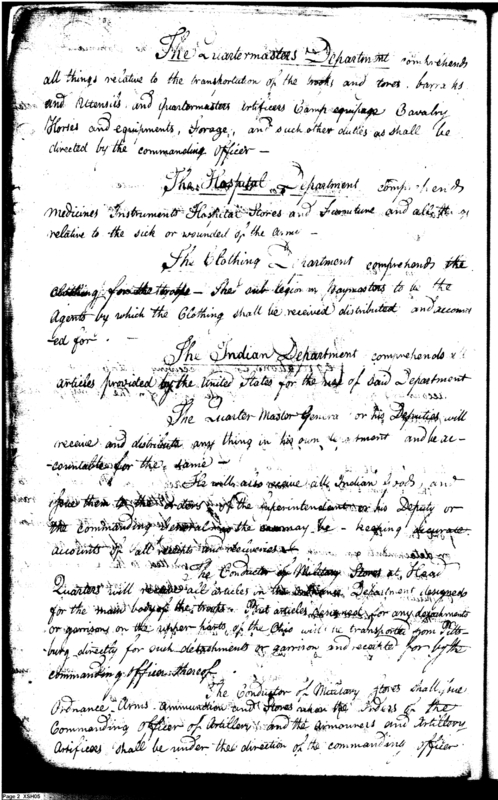 The Quartermasters Department comprehends
all things relative to the transportation of the troops and stores, barracks
and Utensils and quartermasters artificers Camp equipage Cavalry
Horses and equipments, Forage, and such other duties as shall be
directed by the commanding officer —
The Hospital Department comprehends
Medicines Instruments Hospital Stores and Furniture and all things
relative to the sick or wounded of the Army —
The Clothing Department comprehends the
clothing for the troops — The sub legionary paymasters to be the
Agents by which the Clothing shall be received distributed and accoun
ted for. —
The Indian Department comprehends all
articles provided by the United States for the use of said Department
The Quarter Master General or his Deputies will
receive and distribute any thing in his own department and be ac-
countable for the same —
He will also receive all Indian Goods, and
issue them to the orders of the Superintendant or his Deputy or
the commanding General as the case may be — keeping accurate
accounts of all receipts and
The Conductor of Military Stores at Head
Quarters will receive all articles in the Department designed
for the main body of the troops — But articles designed for any detachments
or garrisons on the upper parts of the Ohio will be transported from Pitts-
burg directly for such detachments or garrison and receipted for by the
commanding officer thereof
The Conductor of Military Stores shall issue
Ordnance Arms ammunition and Stores upon the Orders of the
Commanding officer of Artillery and the armourers and Artillery
Artificers shall be under the direction of the commanding officer
Page 2 XSH05